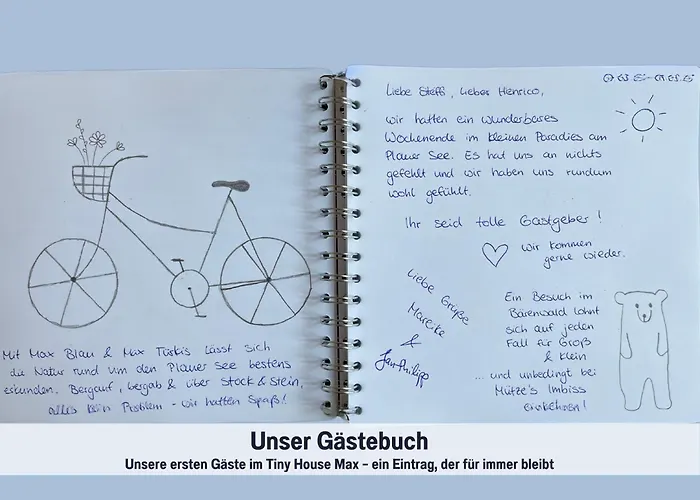 Mit Max Blau & Max Türkis lässt sich
die Natur rund um den Plauer See bestens
erkunden. Bergauf, bergab & über Stock & Stein,
alles kein Problem - wir hatten Spaß!
Liebe Steffi, Lieber Henrico,
wir hatten ein wunderbares
Wochenende im kleinen Paradies am
Plauer See. Es hat uns an nichts
gefehlt und wir haben uns rundum
wohl gefühlt.
Ihr seid tolle Gastgeber!
Wir kommen
gerne wieder.
Liebe Grüße
Mareike
&
Jan-Philipp
Ein Besuch im
Bärenwald lohnt
sich auf jeden
Fall für Groß
& klein
... und unbedingt bei
Mütze's Imbiss
einkehren!
Unser Gästebuch
Unsere ersten Gäste im Tiny House Max – ein Eintrag, der für immer bleibt